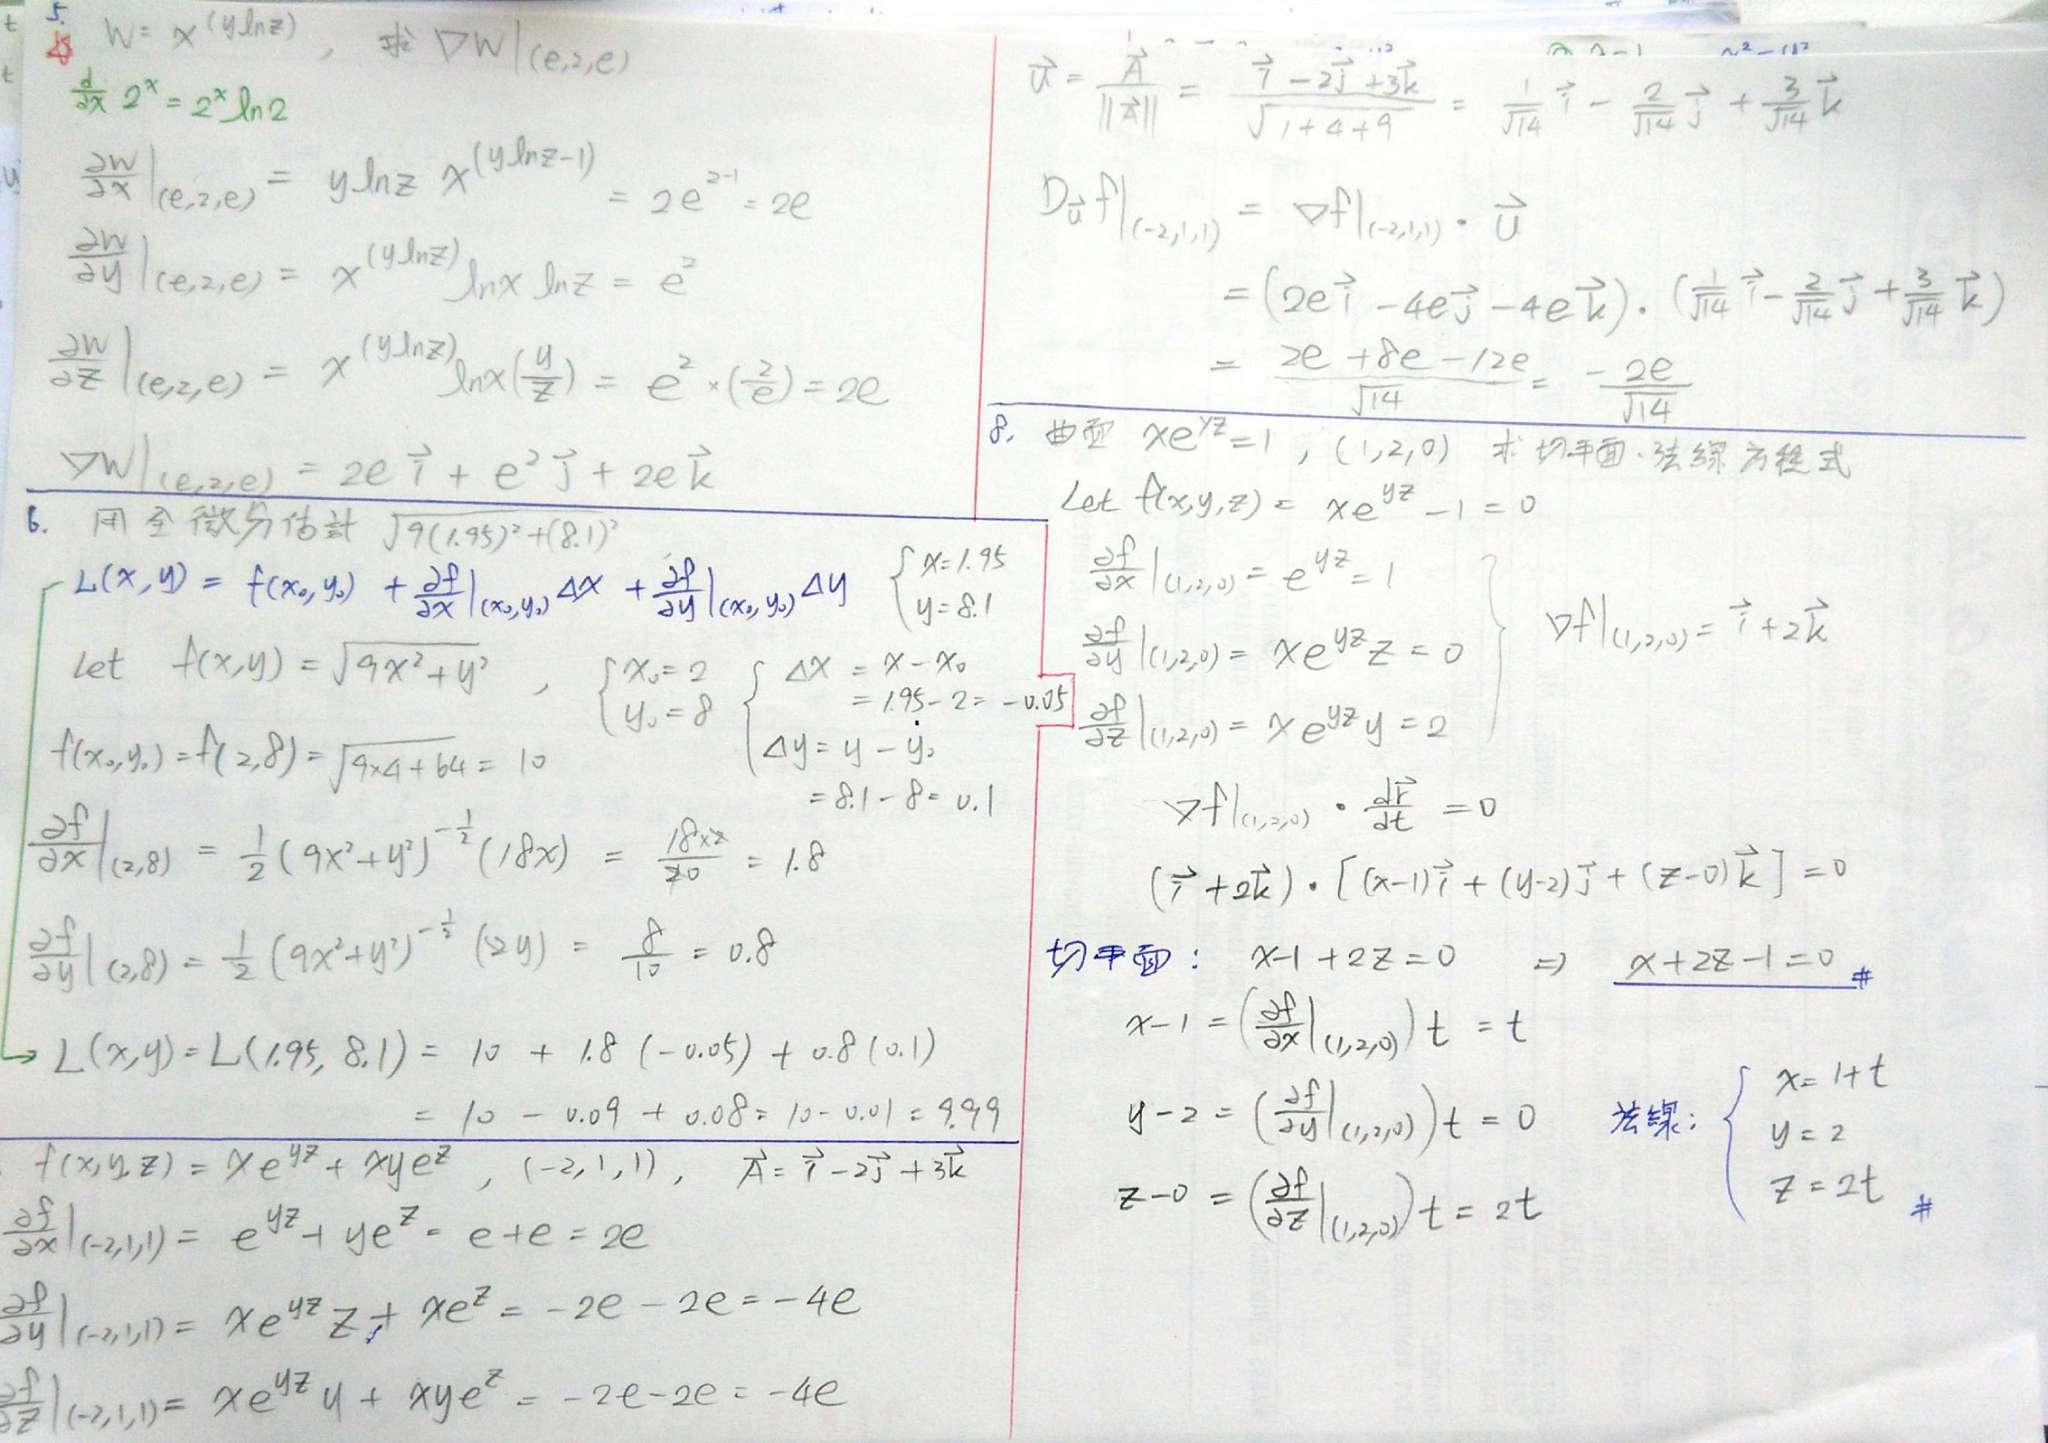 5.
☆ W = x^(y ln z) , 求 ∇W|(e,2,e)
d/dx 2^x = 2^x ln2
∂W/∂x|(e,2,e) = y ln z x^(y ln z-1) = 2e^(2-1) = 2e
∂W/∂y|(e,2,e) = x^(y ln z) ln x ln z = e²
∂W/∂z|(e,2,e) = x^(y ln z) ln x (y/z) = e² × (2/e) = 2e
∇W|(e,2,e) = 2e i⃗ + e² j⃗ + 2e k⃗
6. 用全微分估計 √(9(1.95)²+(8.1)²)
L(x,y) = f(x₀,y₀) + ∂f/∂x|(x₀,y₀) Δx + ∂f/∂y|(x₀,y₀) Δy { x=1.95
y=8.1
Let f(x,y) = √(9x²+y²) , { x₀=2 { Δx = x-x₀
y₀=8 = 1.95-2 = -0.05
Δy = y-y₀
= 8.1-8 = 0.1
f(x₀,y₀) = f(2,8) = √(9×4+64) = 10
∂f/∂x|(2,8) = 1/2 (9x²+y²)^(-1/2) (18x) = 18×2/20 = 1.8
∂f/∂y|(2,8) = 1/2 (9x²+y²)^(-1/2) (2y) = 8/10 = 0.8
L(x,y) = L(1.95, 8.1) = 10 + 1.8 (-0.05) + 0.8 (0.1)
= 10 - 0.09 + 0.08 = 10 - 0.01 = 9.99
f(x,y,z) = xe^(yz) + xye^z , (-2,1,1), A⃗ = i⃗ - 2j⃗ + 3k⃗
∂f/∂x|(-2,1,1) = e^(yz) + ye^z = e+e = 2e
∂f/∂y|(-2,1,1) = xe^(yz) z + xe^z = -2e-2e = -4e
∂f/∂z|(-2,1,1) = xe^(yz) y + xye^z = -2e-2e = -4e
u⃗ = A⃗/||A⃗|| = (i⃗ - 2j⃗ + 3k⃗)/√(1+4+9) = 1/√14 i⃗ - 2/√14 j⃗ + 3/√14 k⃗
D_u⃗ f|(-2,1,1) = ∇f|(-2,1,1) · u⃗
= (2e i⃗ - 4e j⃗ - 4e k⃗) · (1/√14 i⃗ - 2/√14 j⃗ + 3/√14 k⃗)
= (2e + 8e - 12e)/√14 = -2e/√14
8. 曲面 xe^(yz) = 1 , (1,2,0) 求切平面、法線方程式
Let f(x,y,z) = xe^(yz) - 1 = 0
∂f/∂x|(1,2,0) = e^(yz) = 1
∂f/∂y|(1,2,0) = xe^(yz) z = 0 } ∇f|(1,2,0) = i⃗ + 2k⃗
∂f/∂z|(1,2,0) = xe^(yz) y = 2
∇f|(1,2,0) · dr⃗/dt = 0
(i⃗ + 2k⃗) · [(x-1)i⃗ + (y-2)j⃗ + (z-0)k⃗] = 0
切平面: x-1+2z=0 ⇒ x+2z-1=0 #
x-1 = (∂f/∂x|(1,2,0)) t = t
y-2 = (∂f/∂y|(1,2,0)) t = 0
z-0 = (∂f/∂z|(1,2,0)) t = 2t
法線: { x=1+t
y=2
z=2t #